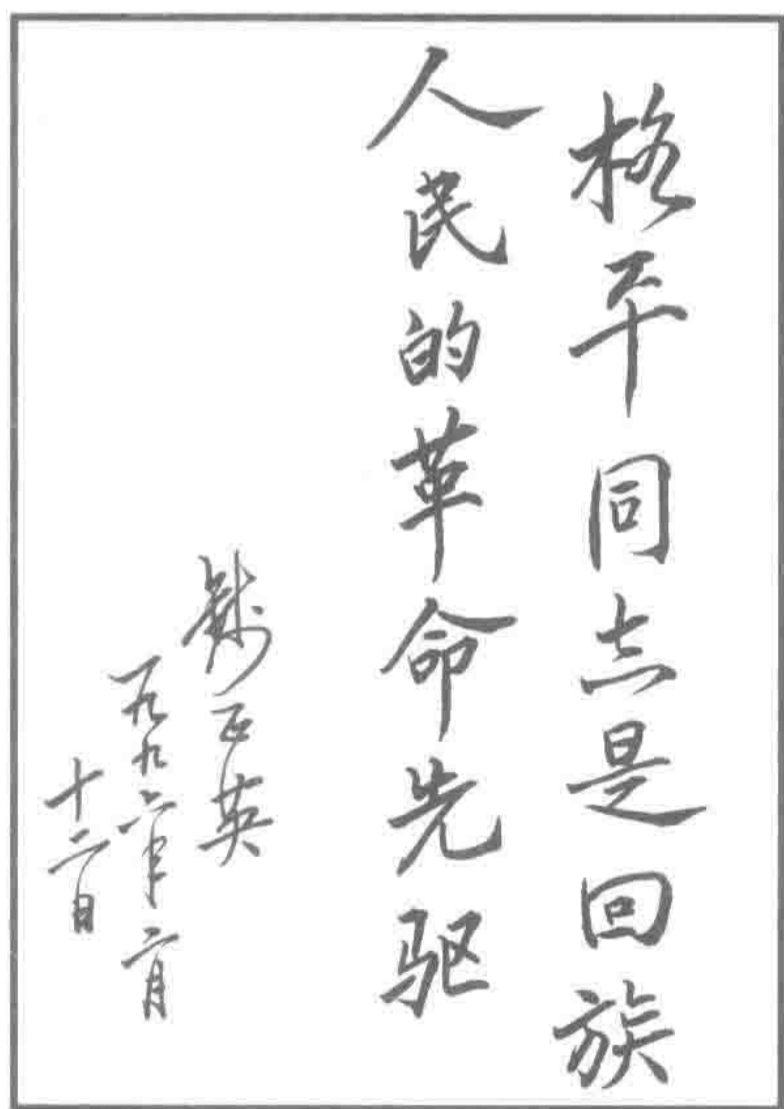 格平同志是回族
人民的革命先驱
钱正英
一九九六年二月
十二日